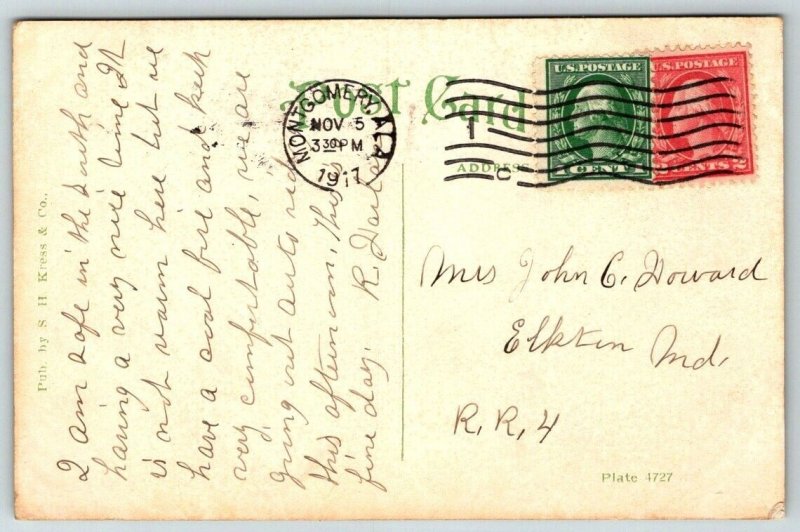 Post Card
ADDRESS
U.S. POSTAGE
1 CENT 1
U.S. POSTAGE
CENTS 2
MONTGOMERY, ALA
NOV 5
3 30 PM
1917
I am safe in the South and
having a very nice time It
is not warm here but we
have a coal fire and keep
very comfortable, we are
going out auto rid
this afternoon, this is
fine day. R.
Mrs John C. Howard
Elkton Md.
R.R. 4
Pub. by S. H. Kress & Co.,
Plate 4727